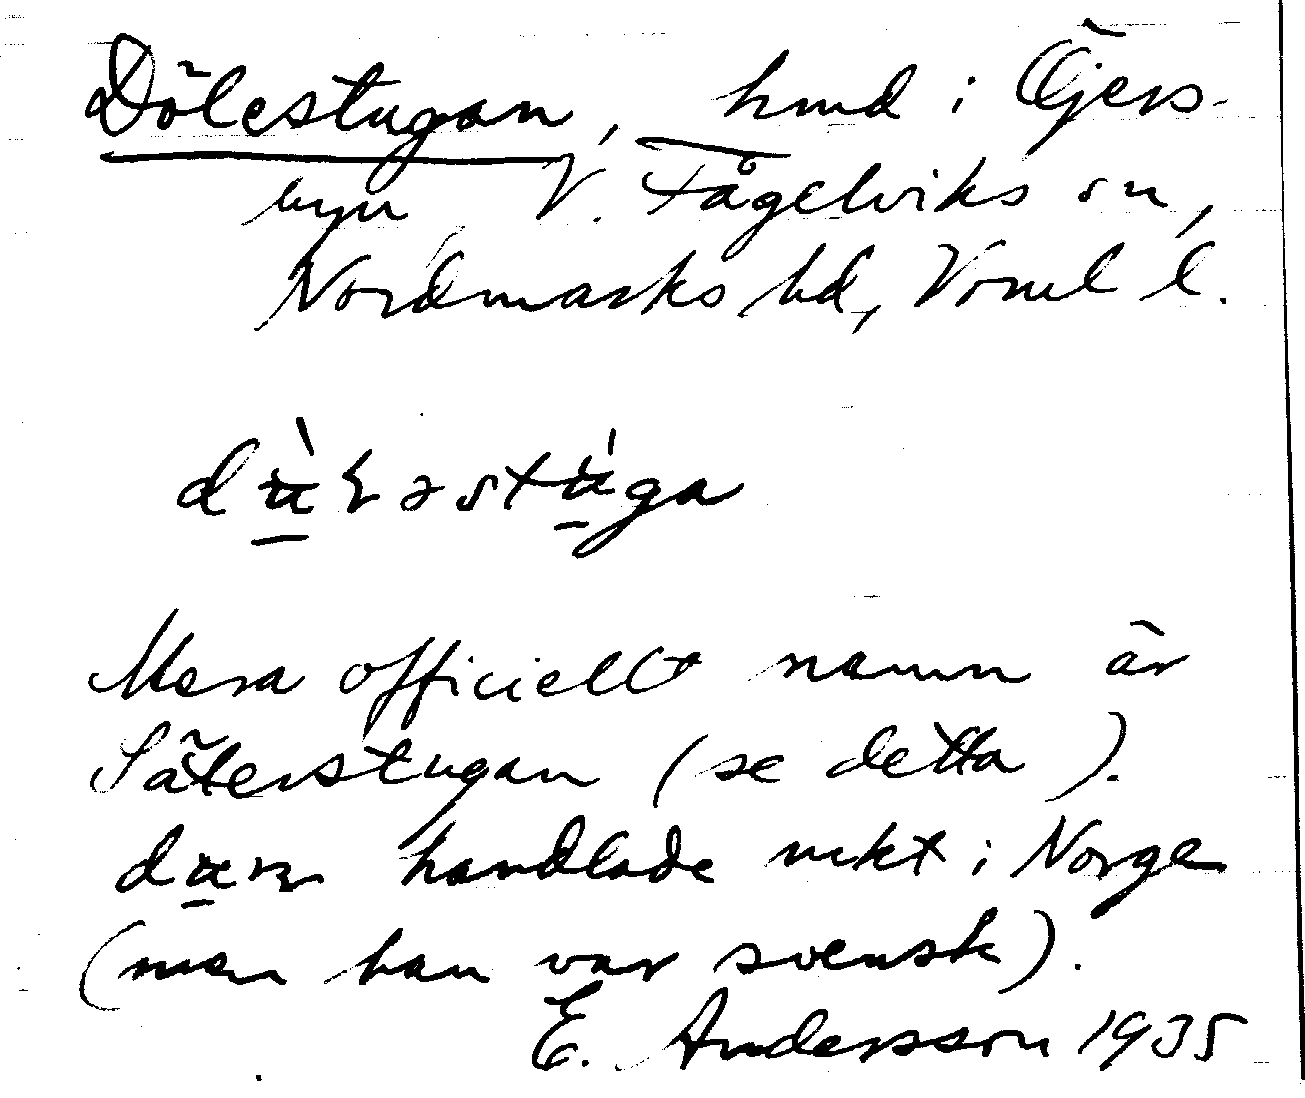 Dölestugan, hmd i Öjers-
byn V. Fågelviks sn,
Nordmarks hd, Vrml l.
Mera officiellt namn är
Säterstugan (se detta).
handlade mkt i Norge
(men han var svensk).
E. Andersson 1935